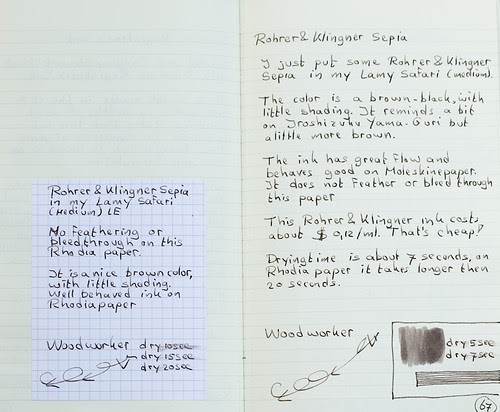 Rohrer & Klingner Sepia
in my Lamy Safari
(Medium) LE
No Feathering or
bleedthrough on this
Rhodia paper.
It is a nice brown color,
with little shading.
Well behaved ink on
Rhodiapaper
Woodworker dry 10sec
dry 15sec
dry 20sec
Rohrer & Klingner Sepia
I just put some Rohrer & Klingner
Sepia in my Lamy Safari (medium).
The color is a brown-black, with
little shading. It reminds a bit
on Iroshizuku Yama-Guri but
a little more brown.
The ink has great flow and
behaves good on Moleskinepaper.
It does not feather or bleed through
this paper
This Rohrer & Klingner ink costs
about $ 0,12/ml. That's cheap!
Dryingtime is about 7 seconds, on
Rhodia paper it takes longer then
20 seconds.
Woodworker
dry 5sec
dry 7sec
67